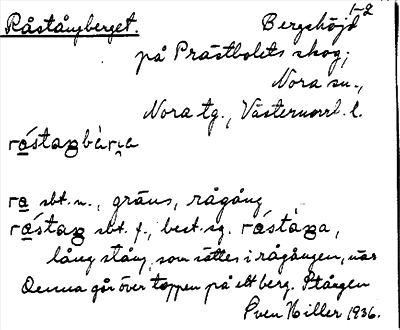 Råstångberget. Bergshöjd 1-2
på Prästbolets skog,
Nora sn.,
Nora tg., Västernorrl. l.
rástaŋbærja
ra sbt. n., gräns, rågång
rástaŋ sbt. f., best. sg. rástàŋa,
lång stång, som sättes i rågången, när
denna går över toppen på ett berg. Stången
Sven Hiller 1936.